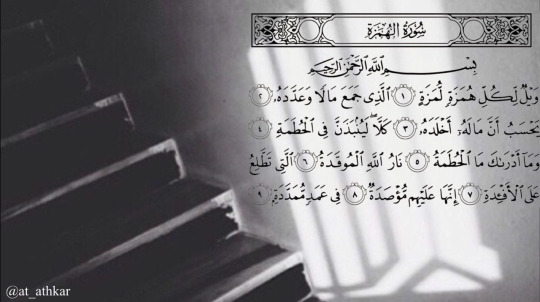 سُورَةُ الهُمَزَةِ
بِسْمِ اللَّهِ الرَّحْمَٰنِ الرَّحِيمِ
وَيْلٌ لِّكُلِّ هُمَزَةٍ لُّمَزَةٍ ١ الَّذِي جَمَعَ مَالًا وَعَدَّدَهُ ٢
يَحْسَبُ أَنَّ مَالَهُ أَخْلَدَهُ ٣ كَلَّا لَيُنبَذَنَّ فِي الْحُطَمَةِ ٤
وَمَا أَدْرَاكَ مَا الْحُطَمَةُ ٥ نَارُ اللَّهِ الْمُوقَدَةُ ٦ الَّتِي تَطَّلِعُ
عَلَى الْأَفْئِدَةِ ٧ إِنَّهَا عَلَيْهِم مُّؤْصَدَةٌ ٨ فِي عَمَدٍ مُّمَدَّدَةٍ ٩
@at_athkar